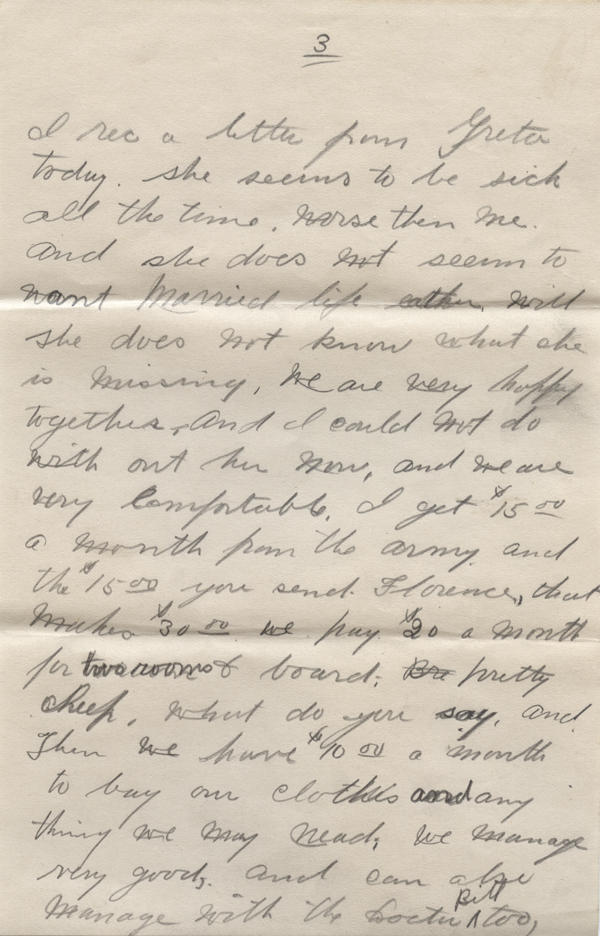 3
I rec a letter from Greta
today. she seems to be sick
all the time, worse then me.
And she does not seem to
want Married life eather, will
she does not know what she
is missing, We are very happy
together, And I could not do
with out her now, and we are
very Comfortable, I get $15 00
a month from the army and
the $15 00 you send Florence, that
makes $30 00 we pay $20 a month
for two rooms & board, pretty
cheep, what do you say, and
Then we have $10 00 a month
to buy our cloths and any
thing we may nead, we manage
very good, and can also
Manage with the Doctor Bill too,